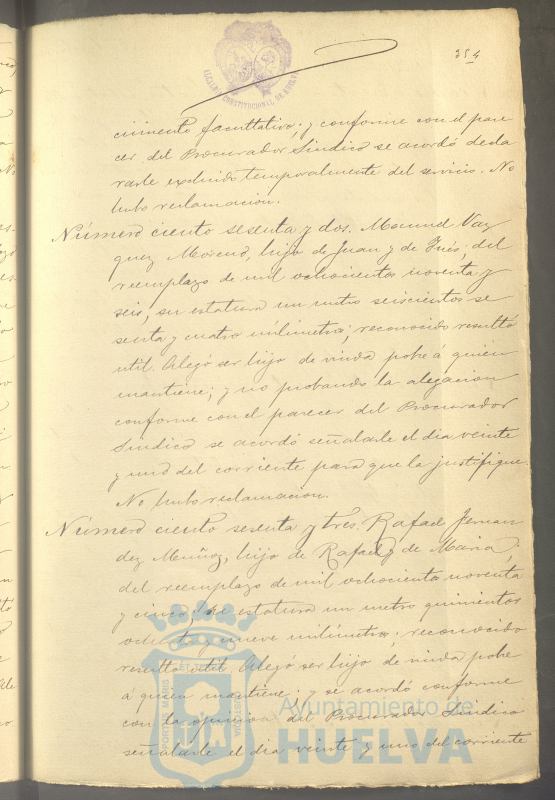 ALCALDIA CONSTITUCIONAL DE HUELVA
354
cimiento facultativo; y conforme con el pare
cer del Procurador Síndico se acordó decla
rarle excluido temporalmente del servicio. No
hubo reclamación.
Número ciento sesenta y dos. Manuel Vaz
quez Moreno, hijo de Juan y de Inés, del
reemplazo de mil ochocientos noventa y
seis, su estatura un metro seiscientos se
senta y cuatro milimetros, reconocido resultó
util. Alegó ser hijo de viuda pobre á quien
mantiene; y no probando la alegacion
conforme con el parecer del Procurador
Síndico se acordó señalarle el dia veinte
y uno del corriente para que la justifique.
No hubo reclamacion.
Número ciento sesenta y tres. Rafael Fernan
dez Muñoz, hijo de Rafael y de Maria,
del reemplazo de mil ochocientos noventa
y cinco, de estatura un metro quinientos
ochenta y nueve milímetros, reconocido
resultó util. Alegó ser hijo de viuda pobre
á quien mantiene; y se acordó conforme
con la opinion del Procurador Síndico
señalarle el dia veinte y uno del corriente
Ayuntamiento de
HUELVA